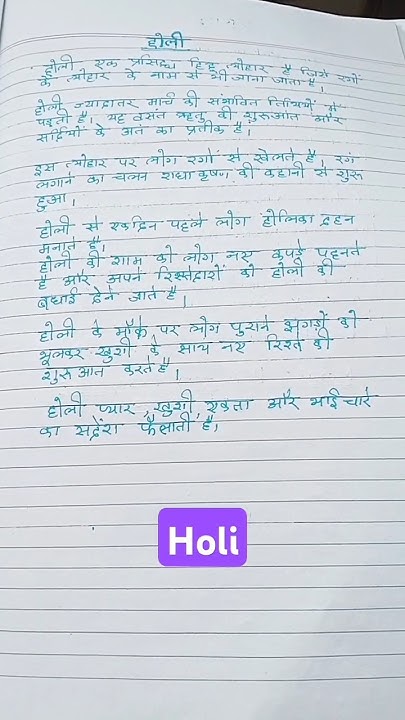 होली
होली एक प्रसिद्ध हिंदू त्योहार है जिसे रंगों
के त्योहार के नाम से भी जाना जाता है।
होली ज्यादातर मार्च की संभावित तिथियों में
पड़ती है। यह वसंत ऋतु की शुरुआत और
सर्दियों के अंत का प्रतीक है।
इस त्योहार पर लोग रंगों से खेलते है, रंग
लगाने का चलन राधाकृष्ण की कहानी से शुरू
हुआ।
होली से एकदिन पहले लोग होलिका दहन
मनाते है।
होली की शाम को लोग नए कपड़े पहनते
है और अपने रिश्तेदारों को होली की
बधाई देने जाते है।
होली के मौके पर लोग पुराने झगड़ों को
भूलकर खुशी के साथ नए रिश्ते की
शुरुआत करते है।
होली प्यार, खुशी, एकता और भाईचारे
का संदेश फैलाती है।
Holi